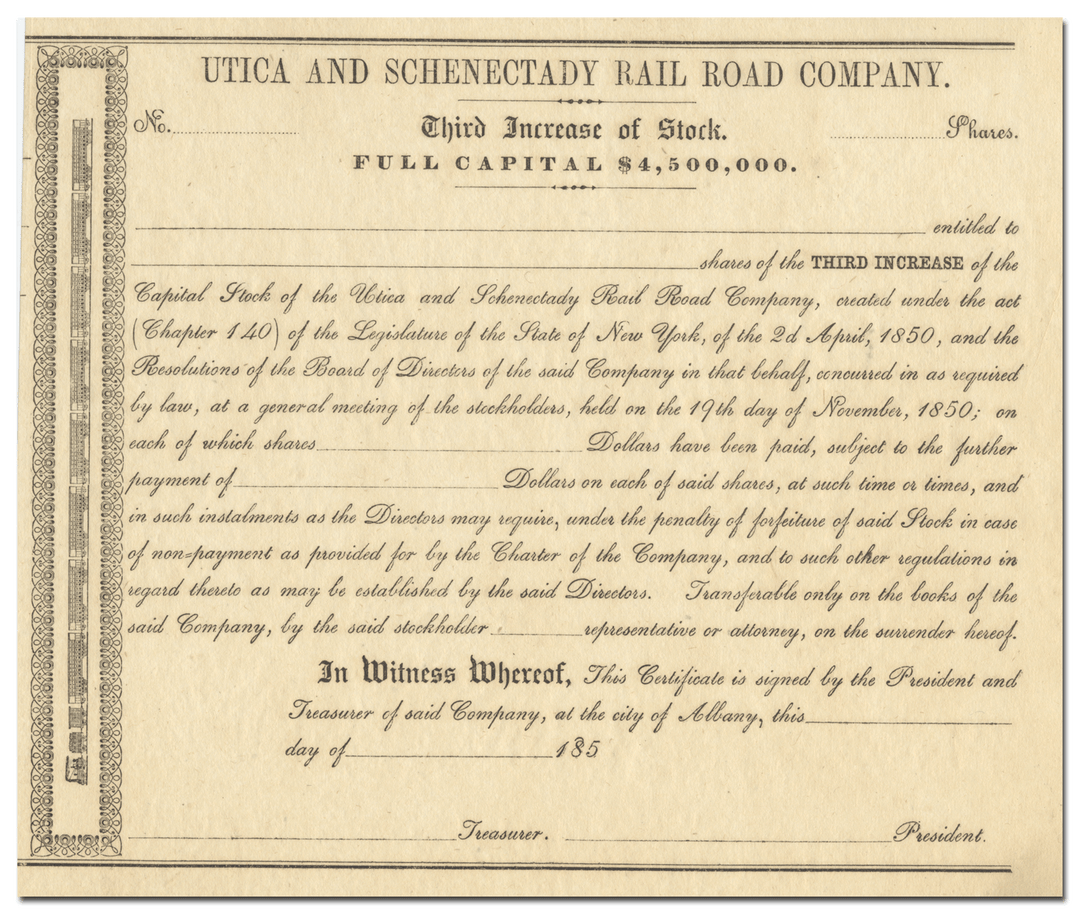 UTICA AND SCHENECTADY RAIL ROAD COMPANY.
No. Third Increase of Stock. Shares.
FULL CAPITAL $4,500,000.
entitled to
shares of the THIRD INCREASE of the
Capital Stock of the Utica and Schenectady Rail Road Company, created under the act
(Chapter 140) of the Legislature of the State of New York, of the 2d April, 1850, and the
Resolutions of the Board of Directors of the said Company in that behalf, concurred in as required
by law, at a general meeting of the stockholders, held on the 19th day of November, 1850; on
each of which shares Dollars have been paid, subject to the further
payment of Dollars on each of said shares, at such time or times, and
in such instalments as the Directors may require, under the penalty of forfeiture of said Stock in case
of non=payment as provided for by the Charter of the Company, and to such other regulations in
regard thereto as may be established by the said Directors. Transferable only on the books of the
said Company, by the said stockholder representative or attorney, on the surrender hereof.
In Witness Whereof, This Certificate is signed by the President and
Treasurer of said Company, at the city of Albany, this
day of 185
Treasurer. President.